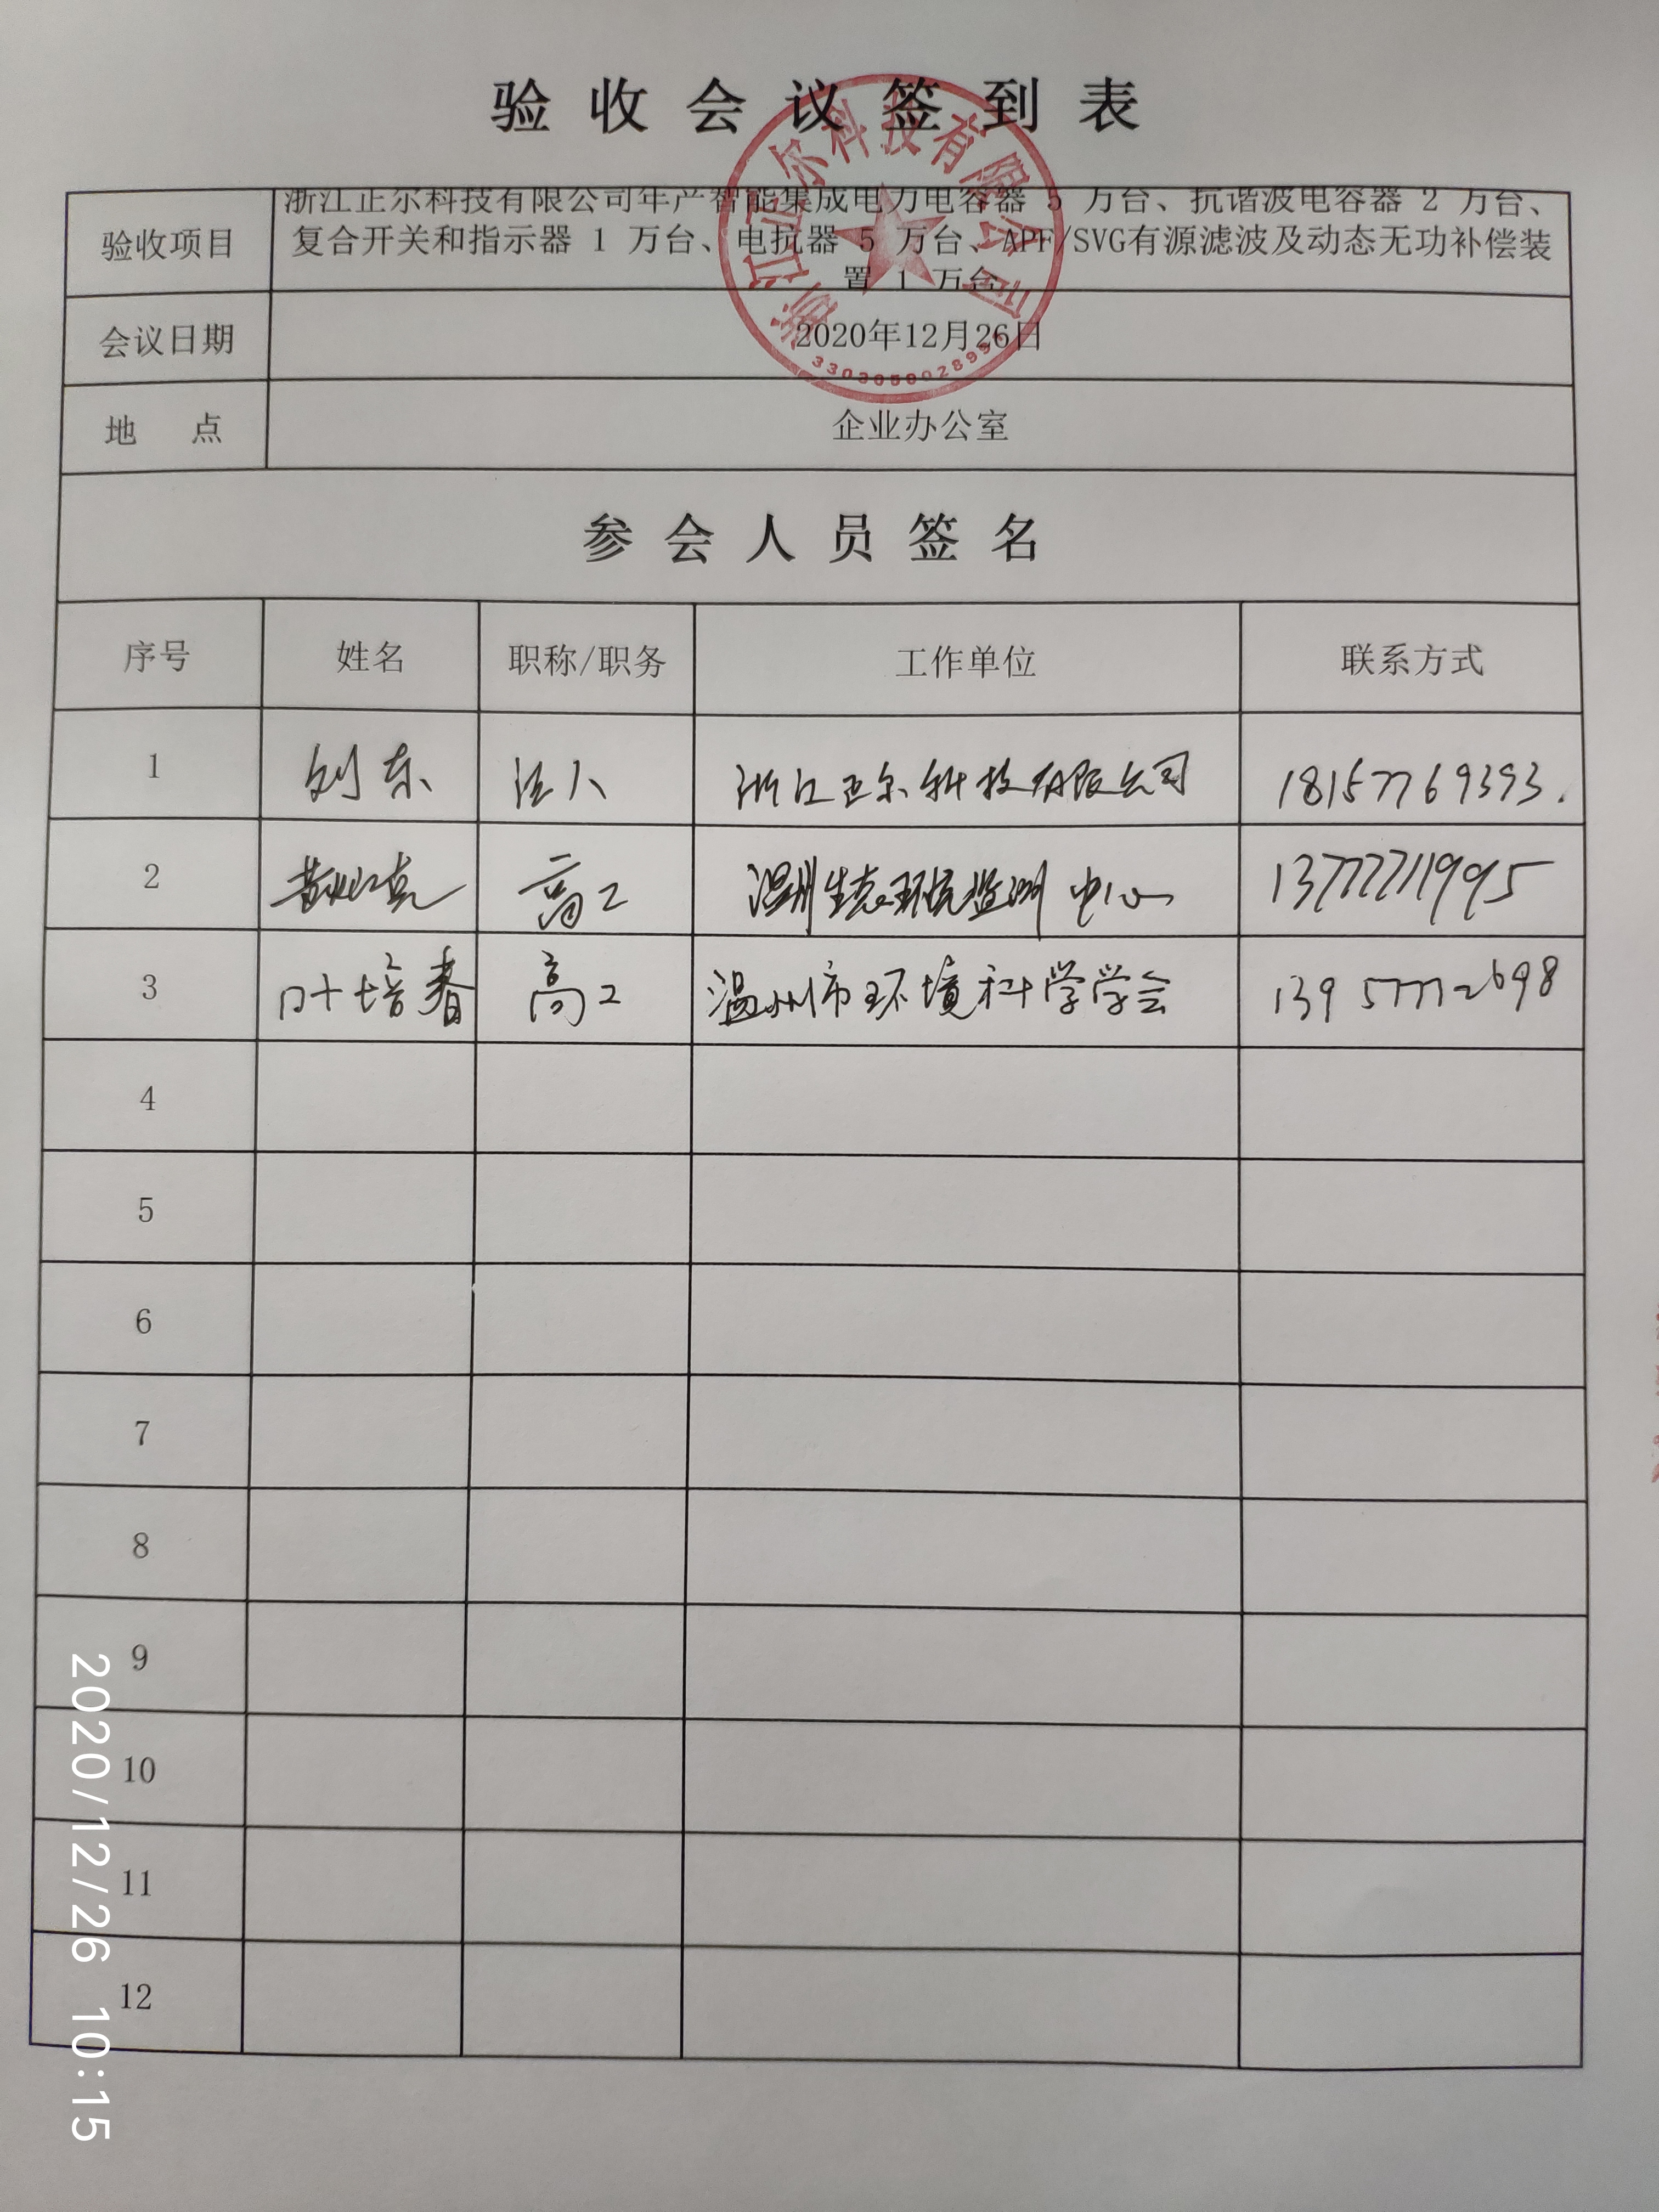 验收会议签到表
验收项目
浙江正尔科技有限公司年产智能集成电力电容器 5 万台、抗谐波电容器 2 万台、
复合开关和指示器 1 万台、电抗器 5 万台、APF/SVG有源滤波及动态无功补偿装
置 1 万台
浙江正尔科技有限公司
会议日期 2020年12月26日
地 点 企业办公室
参会人员签名
序号 姓名 职称/职务 工作单位 联系方式
1 刘东 法人 浙江正尔科技有限公司 18157769393.
2 高工 温州生态环境监测中心 13777711995
3 叶培春 高工 温州市环境科学学会 13957772698
4
5
6
7
8
9
10
11
12
2020/12/26 10:15